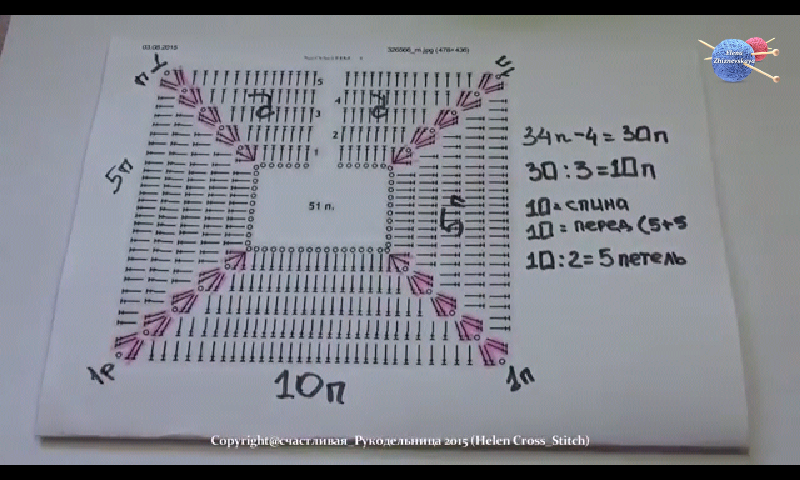 03.08.2015
326566_m.jpg (478×436)
Elena
Zhiznevskaya
1п
1п
5
4
3
2
1
5п
51 п.
5п
1р
10п
1п
34п-4=30п
30:3=10п
10=спина
10=перед (5+5
10:2=5 петель
Copyright@счастливая_Рукодельница 2015 (Helen Cross_Stitch)